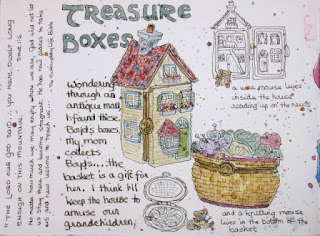 TREASURE
BOXES
Wondering
through an
antique mall
I found these
Boyds boxes.
My mom
collects
Boyds....the
basket is a gift for
her. I think I'll
keep the house to
amuse our
grandchildren.
a wee mouse lives
inside the house
reading up on the roots
and a knitting mouse
lives in the bottom of the
basket
"THE LORD our GOD said... you have dwelt long
enough on this mountain."
No matter how much we may enjoy where we are, God will not let
us stay there and become stagnant. He has new places to take
us, and new lessons to teach us...